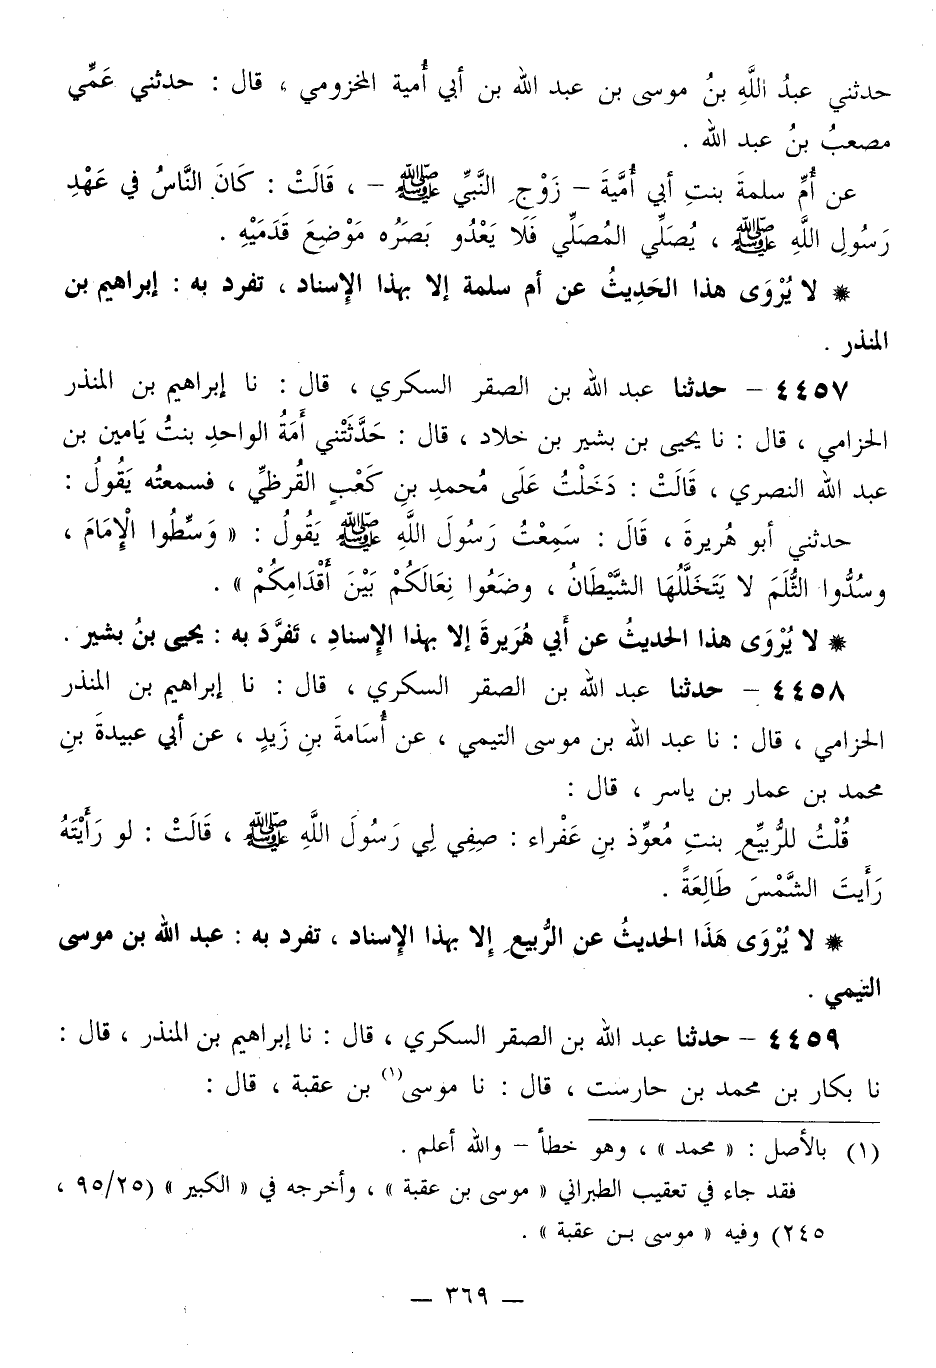 حدثني عبدُ اللَّهِ بنُ موسى بن عبد الله بن أبي أُمية المخزومي ، قال : حدثني عَمِّي
مصعبُ بنُ عبد الله .
عن أُمِّ سلمةَ بنتِ أبي أُمَّيةَ – زَوْجِ النَّبِيِّ ﷺ – ، قَالَتْ : كَانَ النَّاسُ في عَهْدِ
رَسُولِ اللَّهِ ﷺ ، يُصَلِّي المُصَلِّي فَلَا يَعْدُو بَصَرُه مَوْضِعَ قَدَمَيْهِ .
* لا يُرْوَى هذا الحَدِيثُ عن أم سلمة إلا بهذا الإِسناد ، تفرد به : إبراهيم بن
المنذر .
٤٤٥٧ – حدثنا عبد الله بن الصقر السكري ، قال : نا إبراهيم بن المنذر
الحزامي ، قال : نا يحيى بن بشير بن خلاد ، قال : حَدَّثَتْني أَمَةُ الواحدِ بنتُ يَامين بن
عبد الله النصري ، قَالَتْ : دَخَلْتُ عَلَى مُحمدِ بنِ كَعْبٍ القُرظيِّ ، فسمعتُه يَقُولُ :
حدثني أبو هُريرةَ ، قَالَ : سَمِعْتُ رَسُولَ اللَّهِ ﷺ يَقُولُ : « وَسِّطُوا الْإِمَامَ ،
وسُدُّوا الثُّلَمَ لا يَتَخَلَّلُهَا الشَّيْطَانُ ، وضَعُوا نِعَالَكُمْ بَيْنَ أَقْدَامِكُمْ » .
* لا يُرْوَى هذا الحديثُ عن أَبي هُرَيرةَ إلا بهذا الإِسنادِ ، تَفرَّدَ به : يحيى بنُ بشير .
٤٤٥٨ – حدثنا عبد الله بن الصقر السكري ، قال : نا إبراهيم بن المنذر
الحزامي ، قال : نا عبد الله بن موسى التيمي ، عن أُسَامةَ بنِ زَيدٍ ، عن أبي عبيدةَ بنِ
محمد بن عمار بن ياسر ، قال :
قُلْتُ للرُّبيِّعِ بنتِ مُعوِّذ بنِ عَفْراء : صِفِي لِي رَسُولَ اللَّهِ ﷺ ، قَالَتْ : لو رَأَيْتَهُ
رَأَيتَ الشَّمْسَ طَالِعَةً .
* لا يُرْوَى هَذَا الحديثُ عن الرُّبيعِ إلا بهذا الإِسناد ، تفرد به : عبد الله بن موسى
التيمي .
٤٤٥٩ – حدثنا عبد الله بن الصقر السكري ، قال : نا إبراهيم بن المنذر ، قال :
نا بكار بن محمد بن حارست ، قال : نا موسى(١) بن عقبة ، قال :
(١) بالأصل : « محمد » ، وهو خطأ – والله أعلم .
فقد جاء في تعقيب الطبراني « موسى بن عقبة » ، وأخرجه في « الكبير » (٩٥/٢٥ ،
٢٤٥) وفيه « موسى بن عقبة » .
– ٣٦٩ –